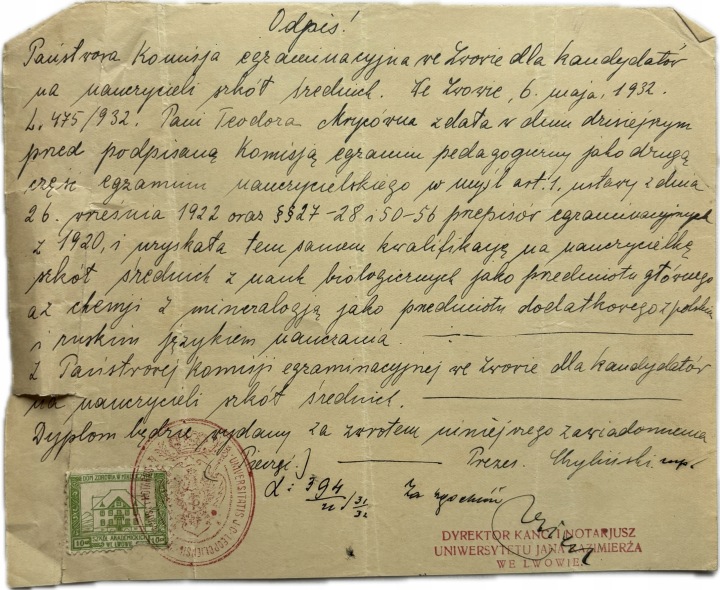 Odpis!
Państwowa Komisja egzaminacyjna we Lwowie dla kandydatów
na nauczycieli szkół średnich. We Lwowie, 6. maja, 1932.
L. 475/932. Pani Teodora Mrycówna zdała w dniu dzisiejszym
przed podpisaną Komisją egzamin pedagogiczny jako drugą
część egzaminu nauczycielskiego w myśl art. 1, ustawy z dnia
26. września 1922 oraz §§ 27-28 i 50-56 przepisów egzaminacyjnych
z 1920, i uzyskała tem samem kwalifikację na nauczycielkę
szkół średnich z nauk biologicznych jako przedmiotu głównego
a z chemji z mineralogją jako przedmiotu dodatkowego z polskim
i ruskim językiem nauczania.
Z Państwowej Komisji egzaminacyjnej we Lwowie dla kandydatów
na nauczycieli szkół średnich.
Dyplom będzie wydany za zwrotem niniejszego zawiadomienia
Prezes.
L: 394
31/32
Za zgodność
DYREKTOR KANC. I NOTARJUSZ
UNIWERSYTETU JANA KAZIMIERZA
WE LWOWIE
DOM ZDROWIA W
10
10